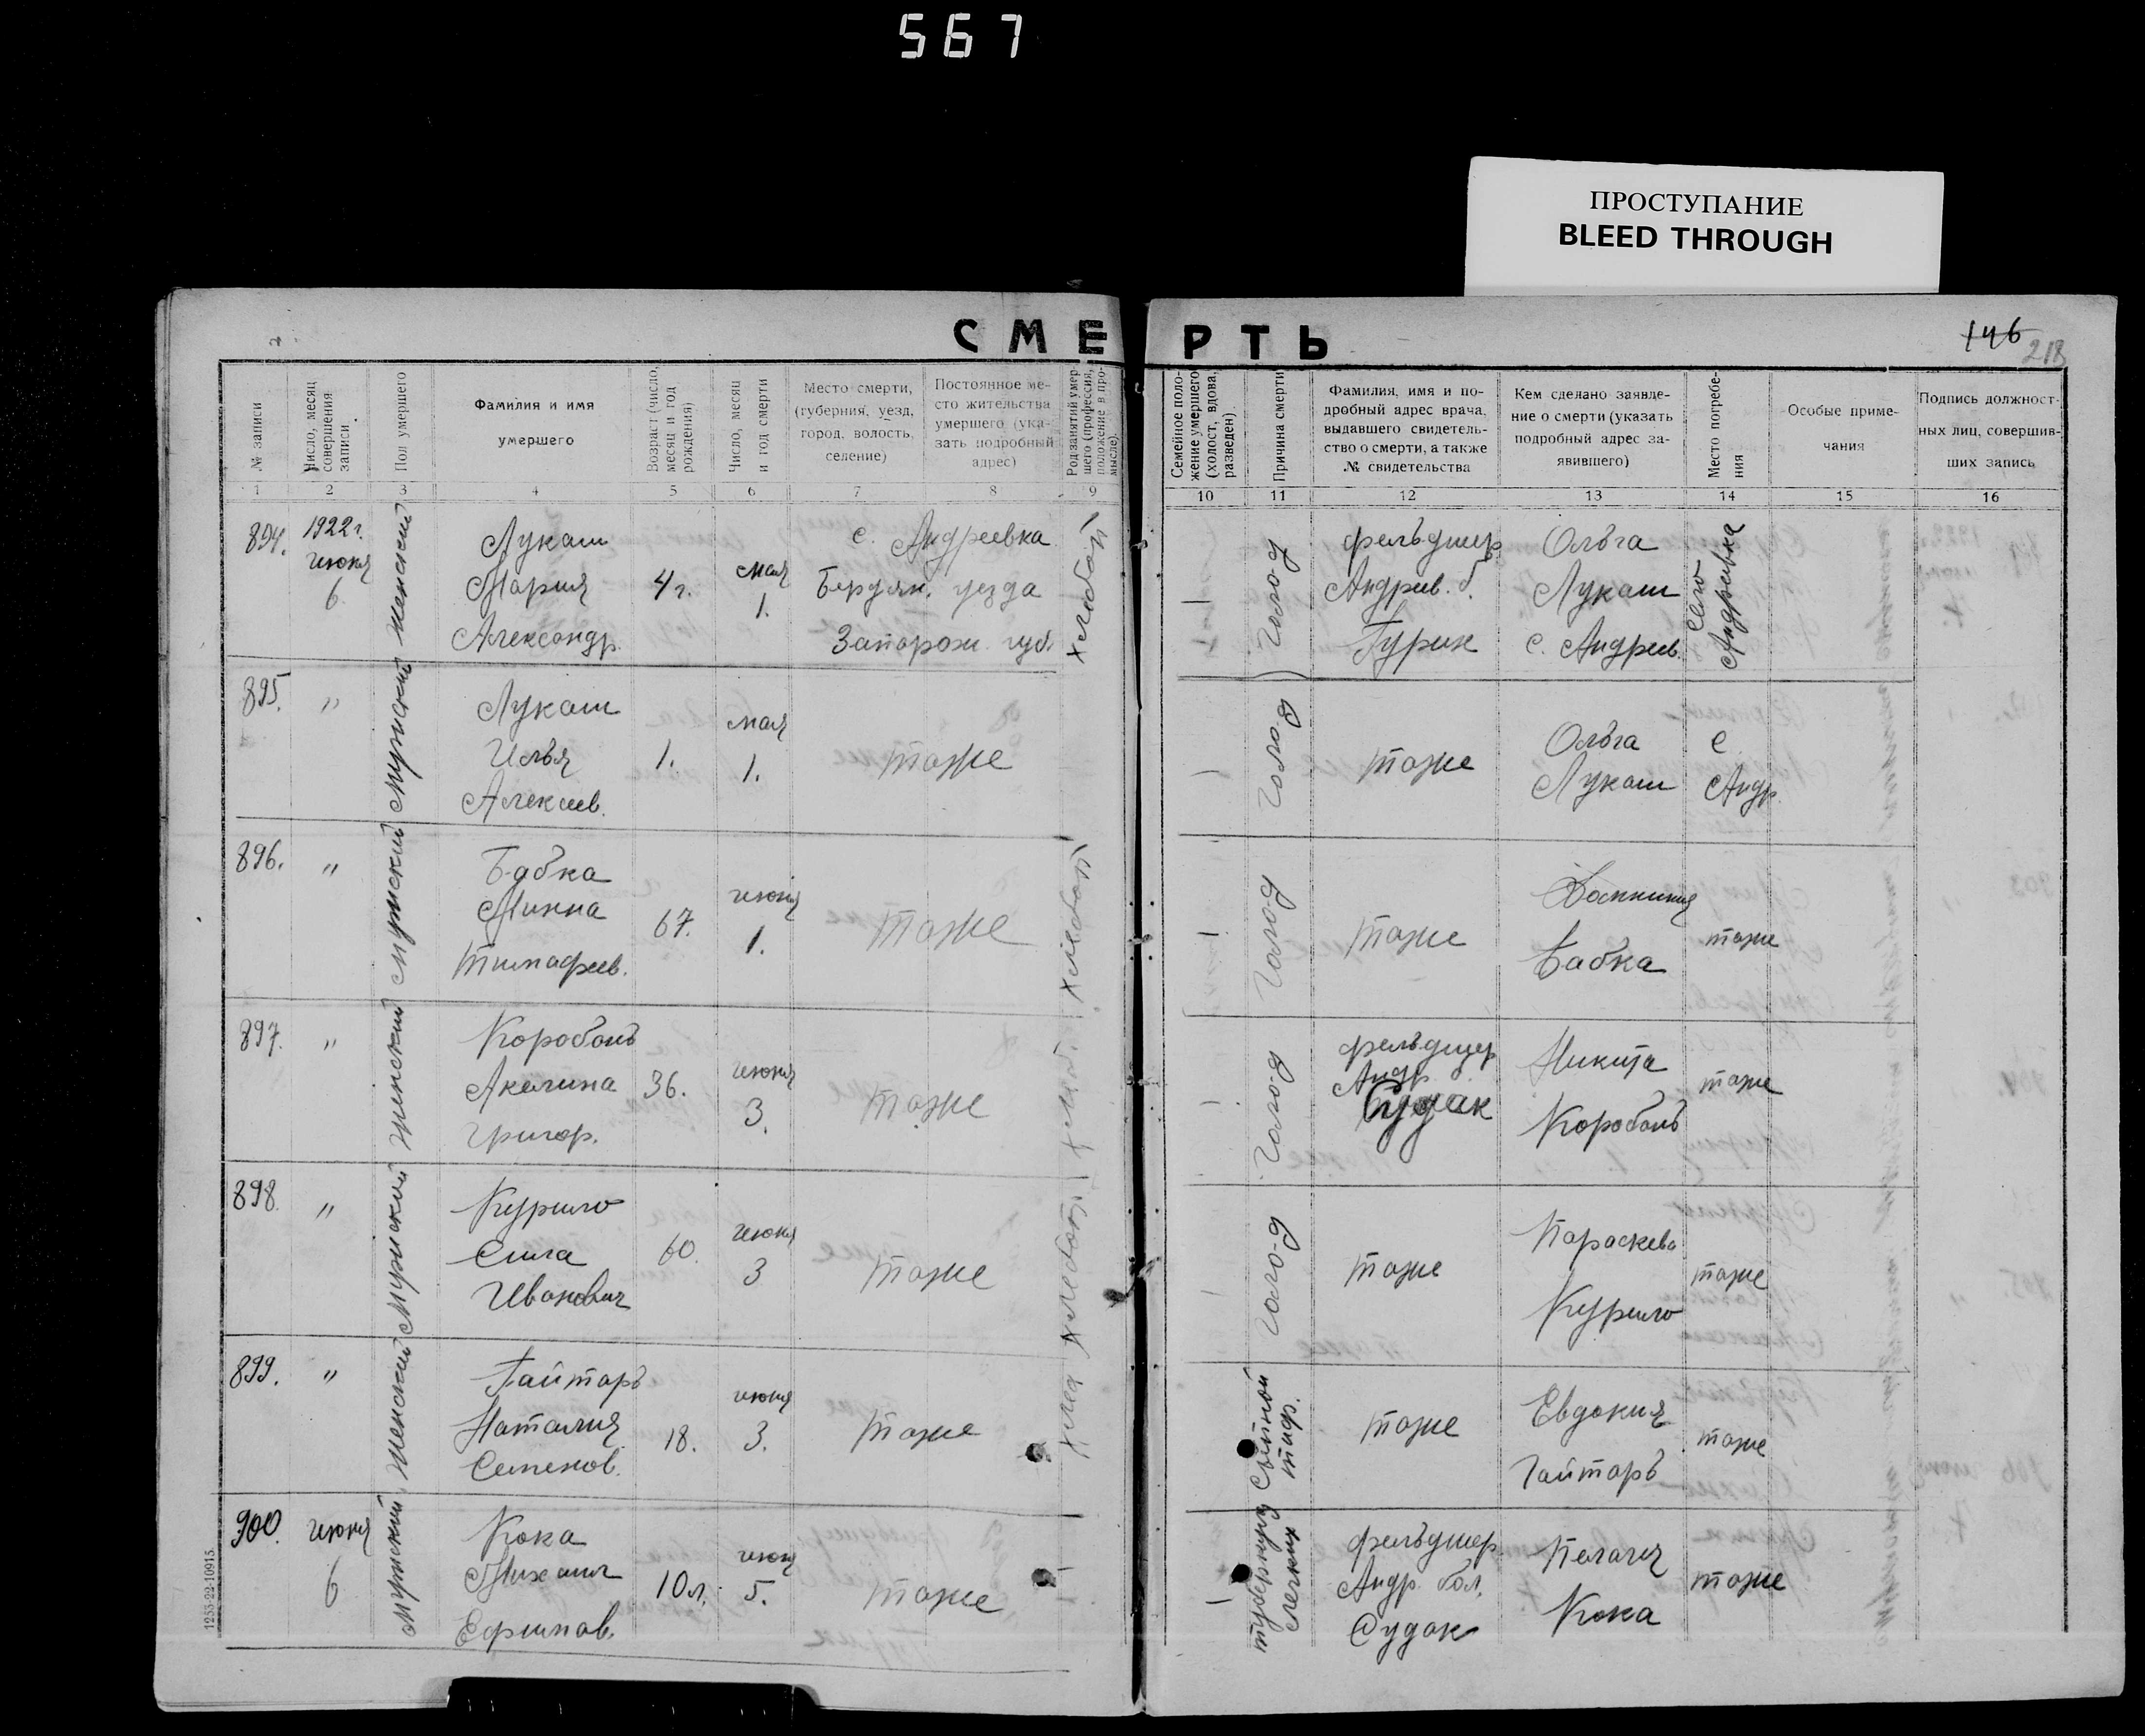 567
ПРОСТУПАНИЕ
BLEED THROUGH
СМЕРТЬ
146
218
№ записи
Число, месяц совершения записи
Пол умершего
Фамилия и имя
умершего
Возраст (число, месяц и год рождения)
Число, месяц и год смерти
Место смерти,
(губерния, уезд,
город, волость,
селение)
Постоянное ме-
сто жительства
умершего (ука-
зать подробный
адрес)
Род занятий умер-
шего (профессия,
положение в про-
мысле).
Семейное поло-
жение умершего
(холост, вдова,
разведен)
Причина смерти
Фамилия, имя и по-
дробный адрес врача,
выдавшего свидетель-
ство о смерти, а также
№ свидетельства
Кем сделано заявле-
ние о смерти (указать
подробный адрес за-
явившего)
Место погребе-
ния
Особые приме-
чания
Подпись должност-
ных лиц, совершив-
ших запись
1 2 3 4 5 6 7 8 9 10 11 12 13 14 15 16
894.
1922 г.
июня
6.
женский
Лукаш
Мария
Александр.
4 г.
мая
1.
с. Андреевка
Бердян. уезда
Запорож. губ.
хлебоп
—
голод
фельдшер
Андреев. б.
Гурин
Ольга
Лукаш
с. Андреев.
село
Андреевка
895.
"
мужской
Лукаш
Илья
Алексеев.
1.
мая
1.
тоже
—
голод
тоже
Ольга
Лукаш
с
Андр.
896.
"
мужской
Бабка
Минна
Тимафеев.
67.
июня
1.
тоже
хлебоп
—
голод
тоже
Бабка
тоже
897.
"
женский
Коробонь
Акелина
Григор.
36.
июня
3.
тоже
хлеб.
—
голод
фельдшер
Андр
Судак
Никита
Коробонь
тоже
898.
"
мужской
Курило
Сила
Иванович
60.
июня
3
тоже
хлебоп.
голод
тоже
Пораскева
Курило
тоже
899.
"
женский
Гайтарь
Наталия
Семенов.
18.
июня
3.
тоже
хлеб
сыпной
тиф.
тоже
Евдокия
Гайтарь
тоже
900.
июня
6
мужской
Кока
Михаил
Ефимов.
10 л.
июня
5.
тоже
—
туберкул
легких
фельдшер
Андр. бол.
Судак
Пелагея
Кока
тоже
1253-22-10915.